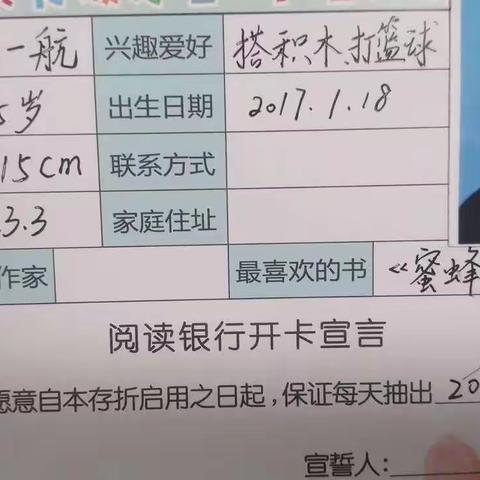 一航 兴趣爱好 搭积木,打篮球
岁 出生日期 2017.1.18
15cm 联系方式
3.3 家庭住址
作家 最喜欢的书 《蜜蜂
阅读银行开卡宣言
愿意自本存折启用之日起,保证每天抽出 20
宣誓人: